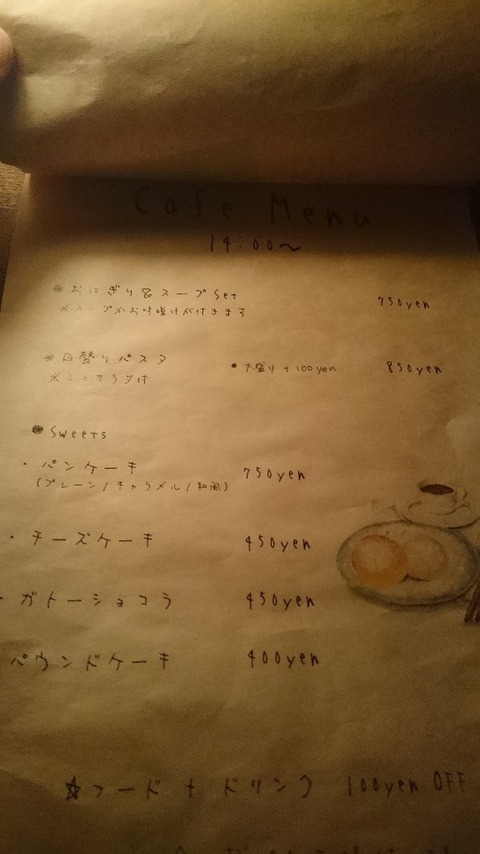 Cafe Menu
14:00〜
● おにぎり & スープ Set 750yen
※スープかお味噌汁が付きます
● 日替りパスタ ● 大盛り +100yen 850yen
※ミニサラダ付
● Sweets
・パンケーキ 750yen
(プレーン/キャラメル/和風)
・チーズケーキ 450yen
・ガトーショコラ 450yen
パウンドケーキ 400yen
☆フード + ドリンク 100yen OFF